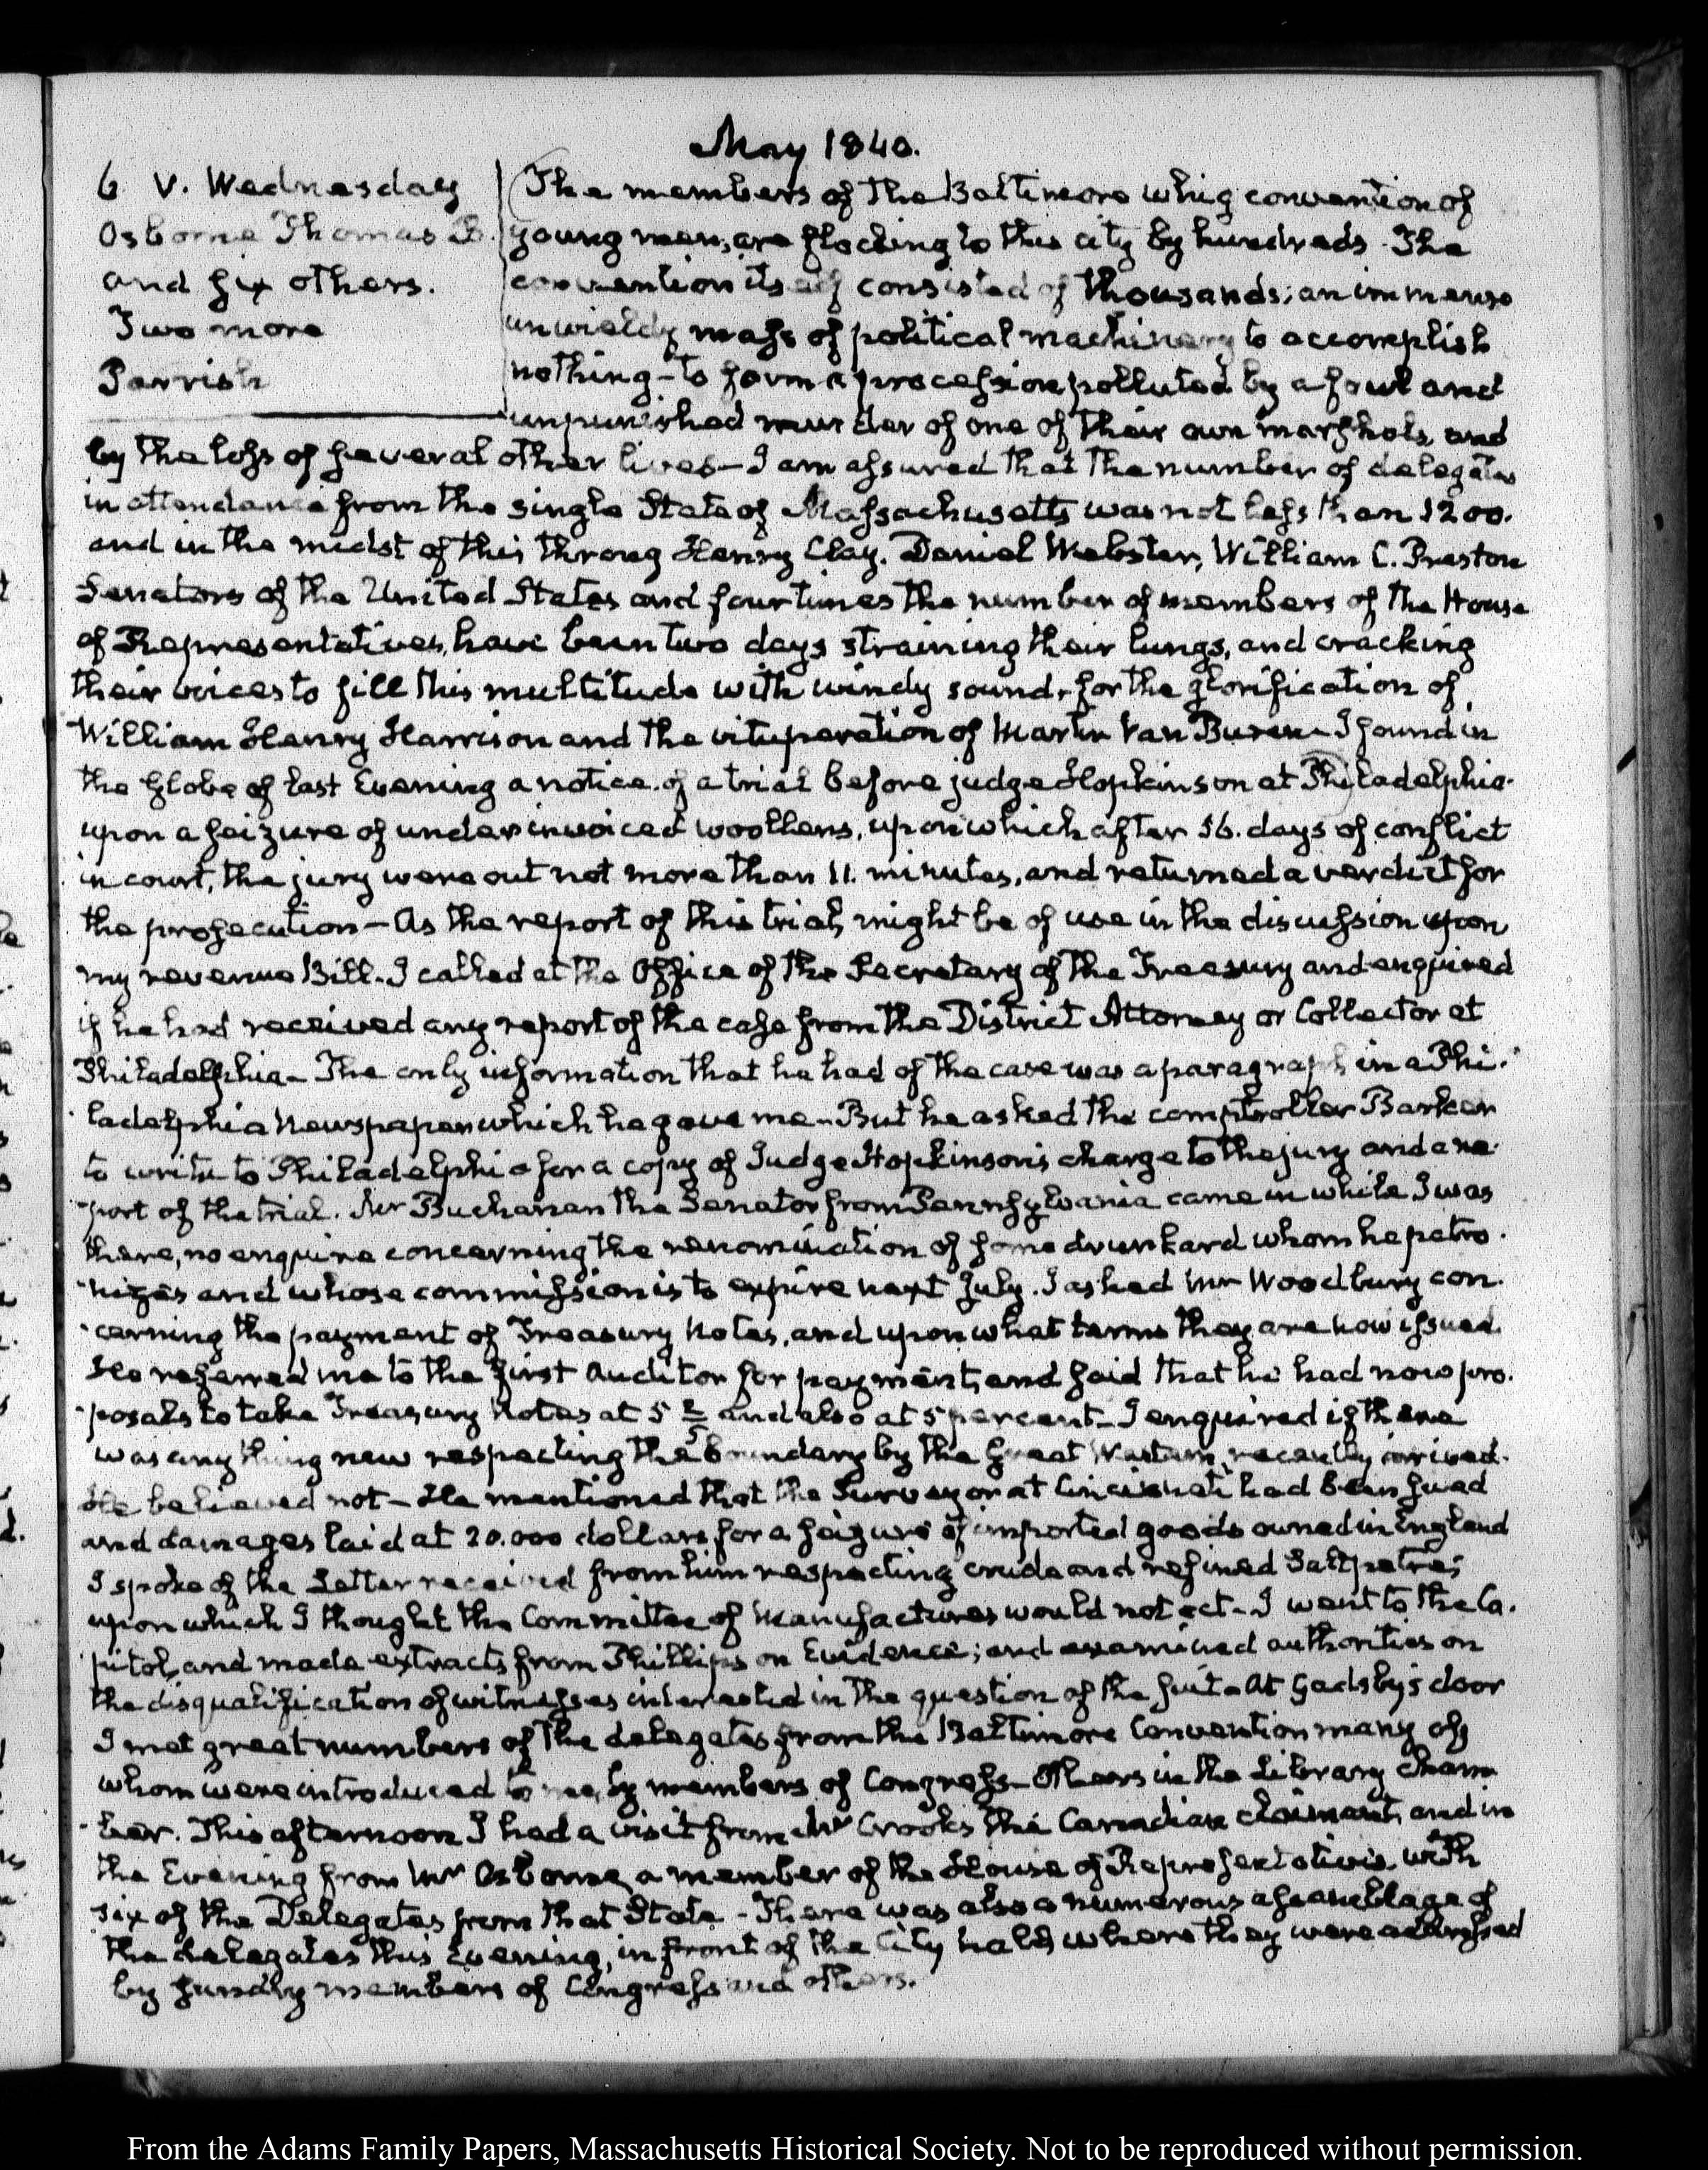 May 1840.
6 V. Wednesday
Osborne Thomas B.
and six others.
Two more
Parrish
The members of the Baltimore whig convention of
young men, are flocking to this city by hundreds. The
convention itself consisted of thousands; an immense
unwieldy mass of political machinery to accomplish
nothing – to form a procession polluted by a foul and
unpunished murder of one of their own marshals, and
by the loss of several other lives – I am assured that the number of delegates
in attendance from the single State of Massachusetts was not less than 1200.
and in the midst of this throng Henry Clay, Daniel Webster, William C. Preston
Senators of the United States and four times the number of members of the House
of Representatives, have been two days straining their lungs, and cracking
their voices to fill this multitude with windy sound, for the glorification of
William Henry Harrison and the vituperation of Martin Van Buren – I found in
the Globe of last Evening a notice of a trial before judge Hopkinson at Philadelphia
upon a seizure of under invoiced woollens, upon which after 16. days of conflict
in court, the jury were out not more than 11. minutes, and returned a verdict for
the prosecution – As the report of this trial, might be of use in the discussion upon
my revenue Bill. I called at the Office of the Secretary of the Treasury and enquired
if he had received any report of the case from the District Attorney or Collector at
Philadelphia – The only information that he had of the case was a paragraph in a Phi-
ladelphia Newspaper which he gave me – But he asked the comptroller Barker
to write to Philadelphia for a copy of Judge Hopkinson's charge to the jury and a re-
port of the trial. Mr Buchanan the Senator from Pennsylvania came in while I was
there, to enquire concerning the renomination of some drunkard whom he patro-
nizes and whose commission is to expire next July. I asked Mr Woodbury con-
cerning the payment of Treasury Notes, and upon what terms they are now issued.
He referred me to the first Auditor for payment, and said that he had now pro-
posals to take Treasury Notes at 5 2/5 and also at 5 per cent – I enquired if there
was any thing new respecting the boundary by the Great Western, recently arrived.
He believed not – He mentioned that the Surveyor at Cincinnati had been sued
and damages laid at 20.000 dollars for a seizure of imported goods owned in England
I spoke of the Letter received from him respecting crude and refined Saltpetre;
upon which I thought the Committee of Manufactures would not act – I went to the Ca-
pitol, and made extracts from Phillips on Evidence; and examined authorities on
the disqualification of witnesses interested in the question of the suit – At Gadsby's door
I met great numbers of the delegates from the Baltimore Convention many of
whom were introduced to me, by members of Congress – Others in the Library Cham
ber. This afternoon I had a visit from Mr Crooks the Canadian claimant, and in
the Evening from Mr Osborne, a member of the House of Representatives, with
six of the Delegates from that State – There was also a numerous assemblage of
the delegates this Evening, in front of the City hall, where they were addressed
by sundry members of Congress and others.
From the Adams Family Papers, Massachusetts Historical Society. Not to be reproduced without permission.